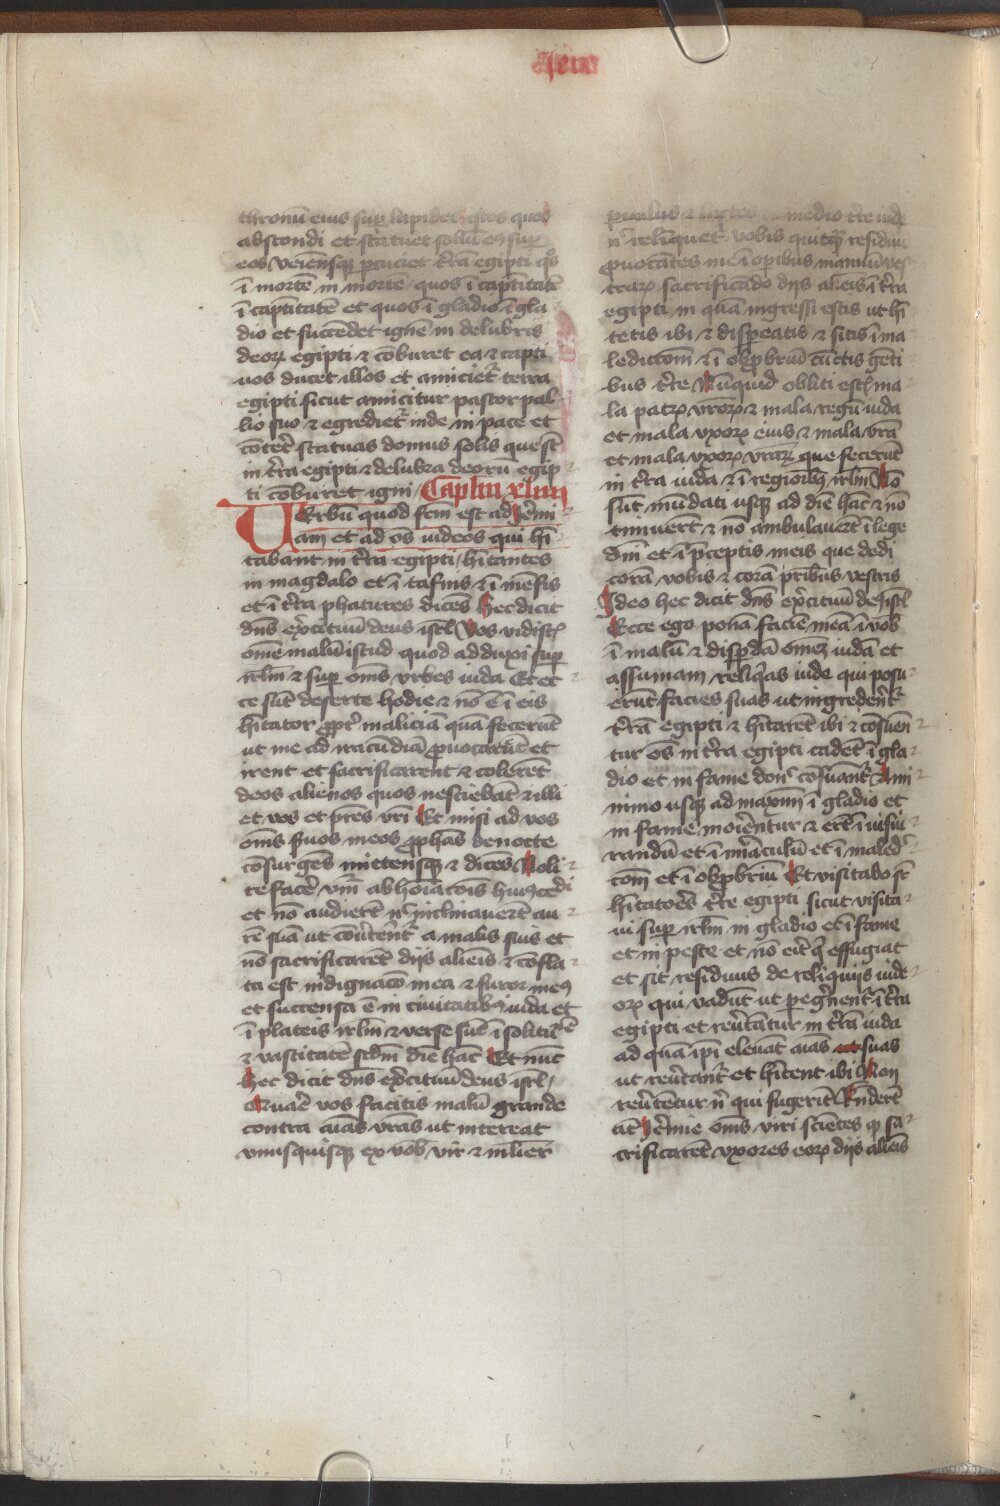 thronū eius sup lapides istos quos
abscondi et statuet soliū eꝯ sup
eos veiensqꝫ pcuciet tr̄ra egipti qͦs
ī mortē in morte / quos ī captītatē
ī captītatē et quos ī gladio ī gla
dio et succēdet ignē in delubris
deoꝝ egipti ⁊ cōburet ea ⁊ capti
uos ducet illos et amicietr̄ terra
egipti sicut amicitur pastor pal
lio suo ⁊ egredietr̄ inde in pace et
cōtet̄ statuas domus solis que st̄
in tr̄ra egipti ⁊ delubra deorū egip
ti cōburet igni / Caplm xliiii
UErbū quod fcm̄ est ad Jer̄mi
am et ad os iudeos qui hī
tabant in tr̄ra egipti / hītantes
in magdalo et ī tafnis ⁊ ī mēfis
et ī tr̄ra phatures dicēs Hec dicit
dn̄s exr̄cituū deus isrl̄ Vos vidistꝭ
om̄e malū istud quod adduxi sup
irlm̄ ⁊ sup om̄s vrbes iuda Et ec
ce sūt deserte hodie ⁊ nō ē ī eis
hītator ꝓpt̄ maliciā quā fecerūt
ut me ad iracūdiā ꝓuocarēt et
irent et sacrificarent ⁊ colerēt
deos alienos quos nesciebāt ⁊ illi
et vos et pr̄es vr̄i Et misi ad vos
om̄s suos meos ꝓphās de nocte
cōsurgēs mittensqꝫ ⁊ dicēs Noli
te facē vm̄ abhoīatōis huiꝯcedi
et nō audierēt nͨ inclinauerēt au
rē suā ut cōuert̄entr̄ a malis suis et
nō sacrificarēt diis alienis ⁊ cōfla
ta est indignacō mea ⁊ furor meꝯ
et succensa ē in ciuitatibꝯ iuda et
ī plateis irlm̄ ⁊ verse sūt ī solitudīe
⁊ vastitatē scdm̄ diē hāc Et nūc
hec dicit dn̄s exr̄cituū deus isrl̄ /
Quar̄e vos facitis malū grande
contra aīas vr̄as ut intereat
vnusquisqꝫ ex vob̄ vir ⁊ ml̄ier
puulus ⁊ lactēs medio tr̄re iude
nͨ relinquetr̄ vobis quitqꝫ residuū
ꝓuocātes me ī oꝑibus manuū ves
traꝝ sacrificādo dijs alieīs ī tr̄ra
egipti in quā ingressi estis ut hī
tetis ibi ⁊ dispeatis ⁊ sitis ī ma
ledictom̄ ⁊ ī obꝓbriū cūctis gēti
bus tr̄re Nūquid obliti estꝭ ma
la patꝝ vr̄oꝝ ⁊ mala regū iuda
et mala vxoꝝ eius ⁊ mala vr̄a
et mala vxoꝝ vr̄aꝝ que fecerūt
in tr̄ra iuda ⁊ ī regionibꝯ irlm̄ Nō
sūt mūdati usqꝫ ad diē hāc ⁊ nō
timuerūt ⁊ nō ambulauerūt ī lege
dn̄i et ī pceptis meis que dedi
corā vobis ⁊ corā pr̄ibus vestris
Jdeo hec dicit dn̄s exr̄cituū deꝯ isrl̄
Ecce ego ponā faciē meā ī vob̄
ī malū ⁊ dispdā om̄eꝫ iudā et
assumam reliq̄as iude qui posu
erūt facies suas ut ingredent̄r
tr̄rā egipti ⁊ hītarēt ibi ⁊ cōsuen
tur os̄ in tr̄ra egipti cadēt ī gla
dio et in fame donͨ cōsuāntr̄ A mi
nimo usqꝫ ad maxīmū ī gladio et
in fame moient̄ur ⁊ erūt ī iusiu
randū et ī mr̄aculū et ī maledc̄
tom̄ et ī obꝓbriū Et visitabo sr̄
hītatoēs tr̄re egipti sicut visita
ui sup irlm̄ in gladio et ī fame
et in peste et nō eit̄ qͥ effugiat
et sit residuus de reliquijs iude
oꝝ qui vadūt ut pegr̄inentr̄ ī tr̄ra
egipti et reuert̄atur in tr̄rā iuda
ad quā ip̄i eleuāt aīas suas
ut reuert̄antr̄ et hītent ibi Non
reuert̄etur nͥ qui fugerīt Rn̄derūt
āt Jer̄mie om̄s viri scīetes qꝫ sa
crificarēt vxores eoꝝ dijs alieīs